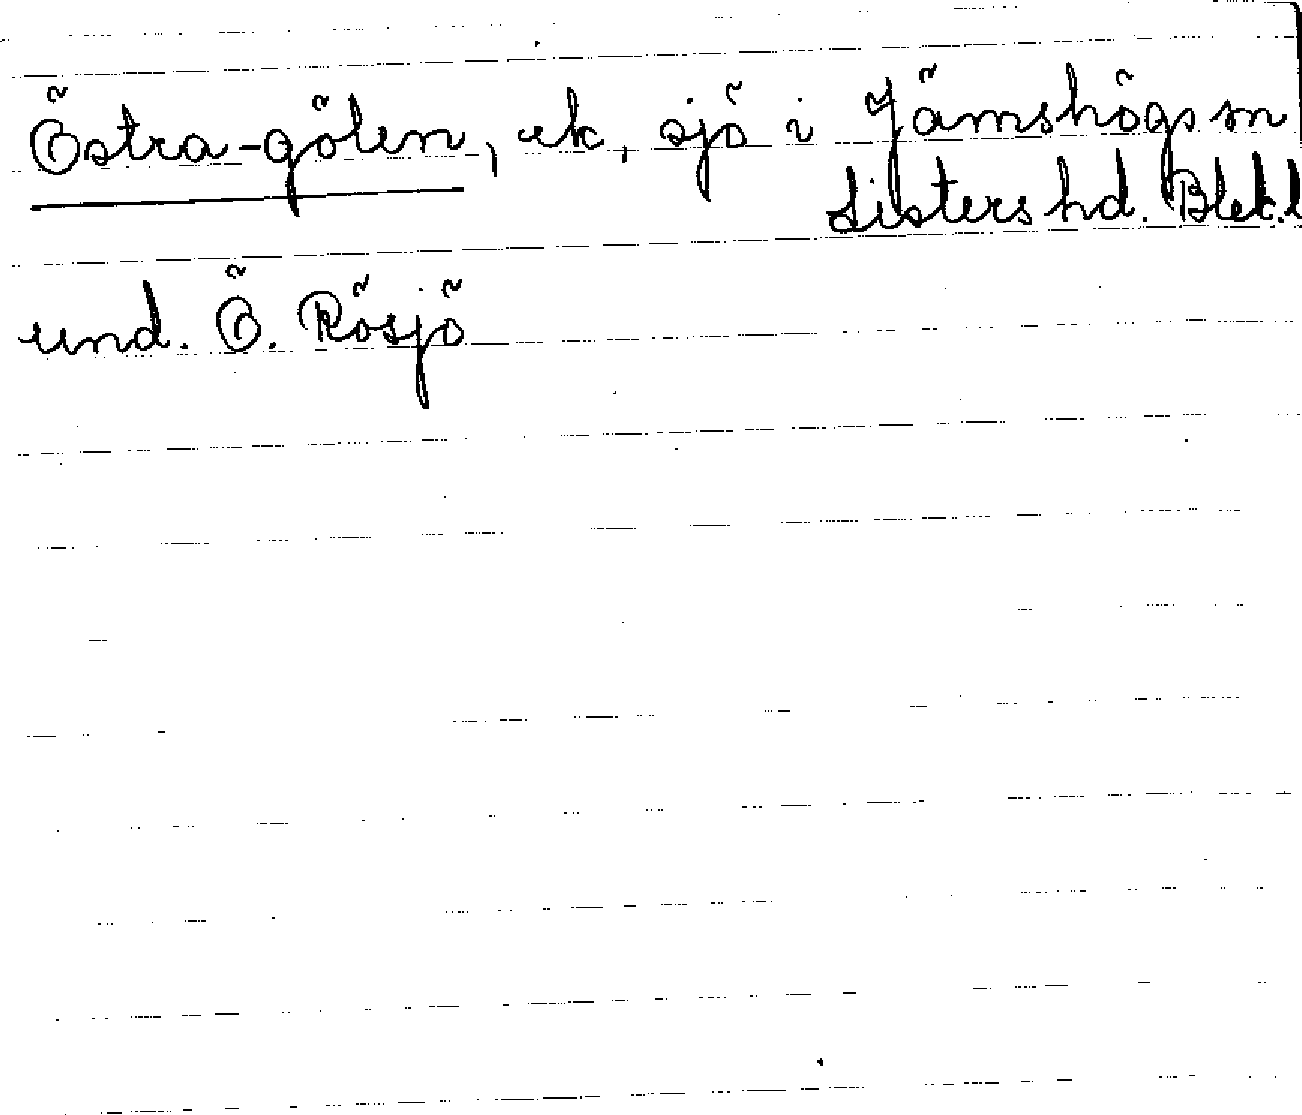 Östra-gölen, ek, sjö i Jämshögs sn
Listers hd. Blek.l
und. Ö. Rösjö